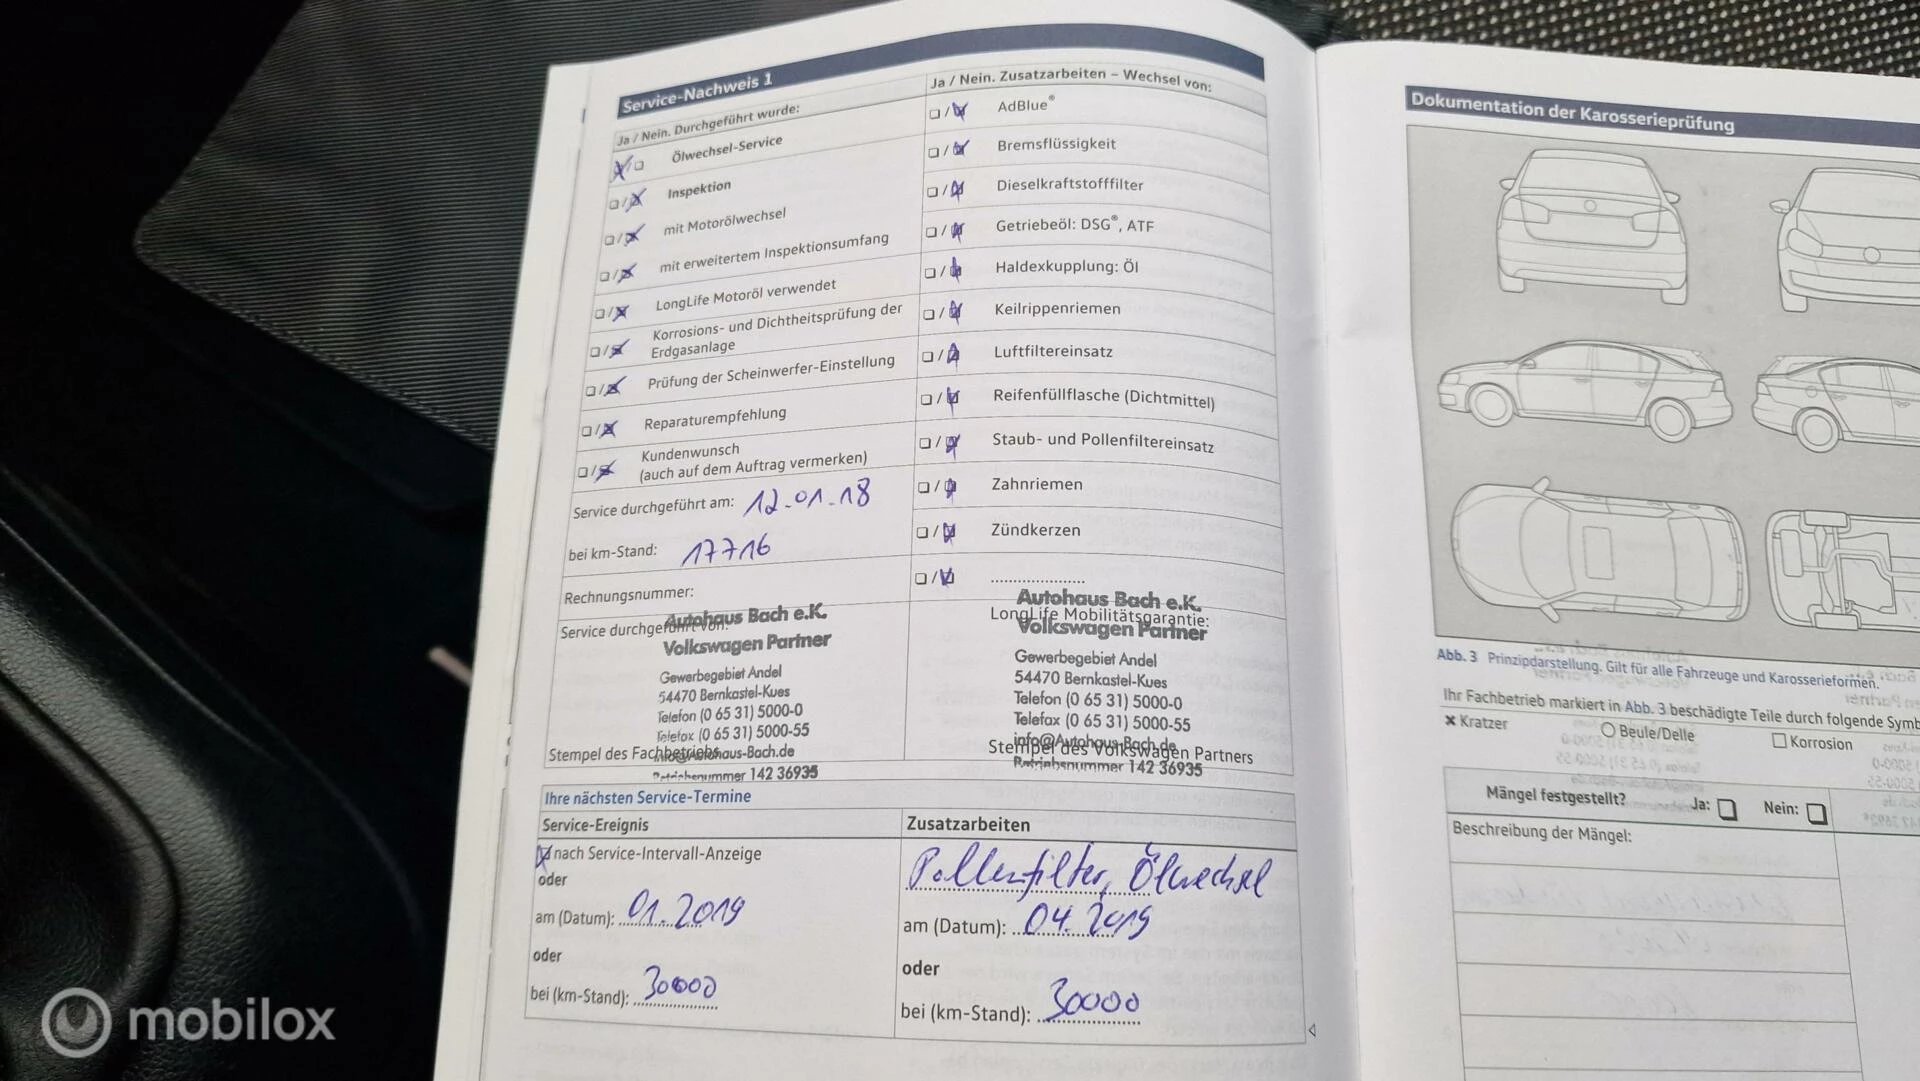 Service-Nachweis 1
Ja / Nein. Durchgeführt wurde:
Ölwechsel-Service
Inspektion
mit Motorölwechsel
mit erweitertem Inspektionsumfang
LongLife Motoröl verwendet
Korrosions- und Dichtheitsprüfung der
Erdgasanlage
Prüfung der Scheinwerfer-Einstellung
Reparaturempfehlung
Kundenwunsch
(auch auf dem Auftrag vermerken)
Service durchgeführt am: 12.01.18
bei km-Stand: 17716
Rechnungsnummer:
Service durchgeführt von:
Autohaus Bach e.K.
Volkswagen Partner
Gewerbegebiet Andel
54470 Bernkastel-Kues
Telefon (0 65 31) 5000-0
Telefax (0 65 31) 5000-55
info@Autohaus-Bach.de
Stempel des Fachbetriebs
Betriebsnummer 142 36935
Ja / Nein. Zusatzarbeiten – Wechsel von:
AdBlue®
Bremsflüssigkeit
Dieselkraftstofffilter
Getriebeöl: DSG®, ATF
Haldexkupplung: Öl
Keilrippenriemen
Luftfiltereinsatz
Reifenfüllflasche (Dichtmittel)
Staub- und Pollenfiltereinsatz
Zahnriemen
Zündkerzen
Autohaus Bach e.K.
LongLife Mobilitätsgarantie:
Volkswagen Partner
Gewerbegebiet Andel
54470 Bernkastel-Kues
Telefon (0 65 31) 5000-0
Telefax (0 65 31) 5000-55
info@Autohaus-Bach.de
Stempel des Volkswagen Partners
Betriebsnummer 142 36935
Ihre nächsten Service-Termine
Service-Ereignis
nach Service-Intervall-Anzeige
oder
am (Datum): 01.2019
oder
bei (km-Stand): 30000
Zusatzarbeiten
Pollenfilter, Ölwechsel
am (Datum): 04.2019
oder
bei (km-Stand): 30000
Dokumentation der Karosserieprüfung
Abb. 3 Prinzipdarstellung. Gilt für alle Fahrzeuge und Karosserieformen.
Ihr Fachbetrieb markiert in Abb. 3 beschädigte Teile durch folgende Symb
Kratzer
Beule/Delle
Korrosion
Mängel festgestellt? Ja: Nein:
Beschreibung der Mängel:
mobilox